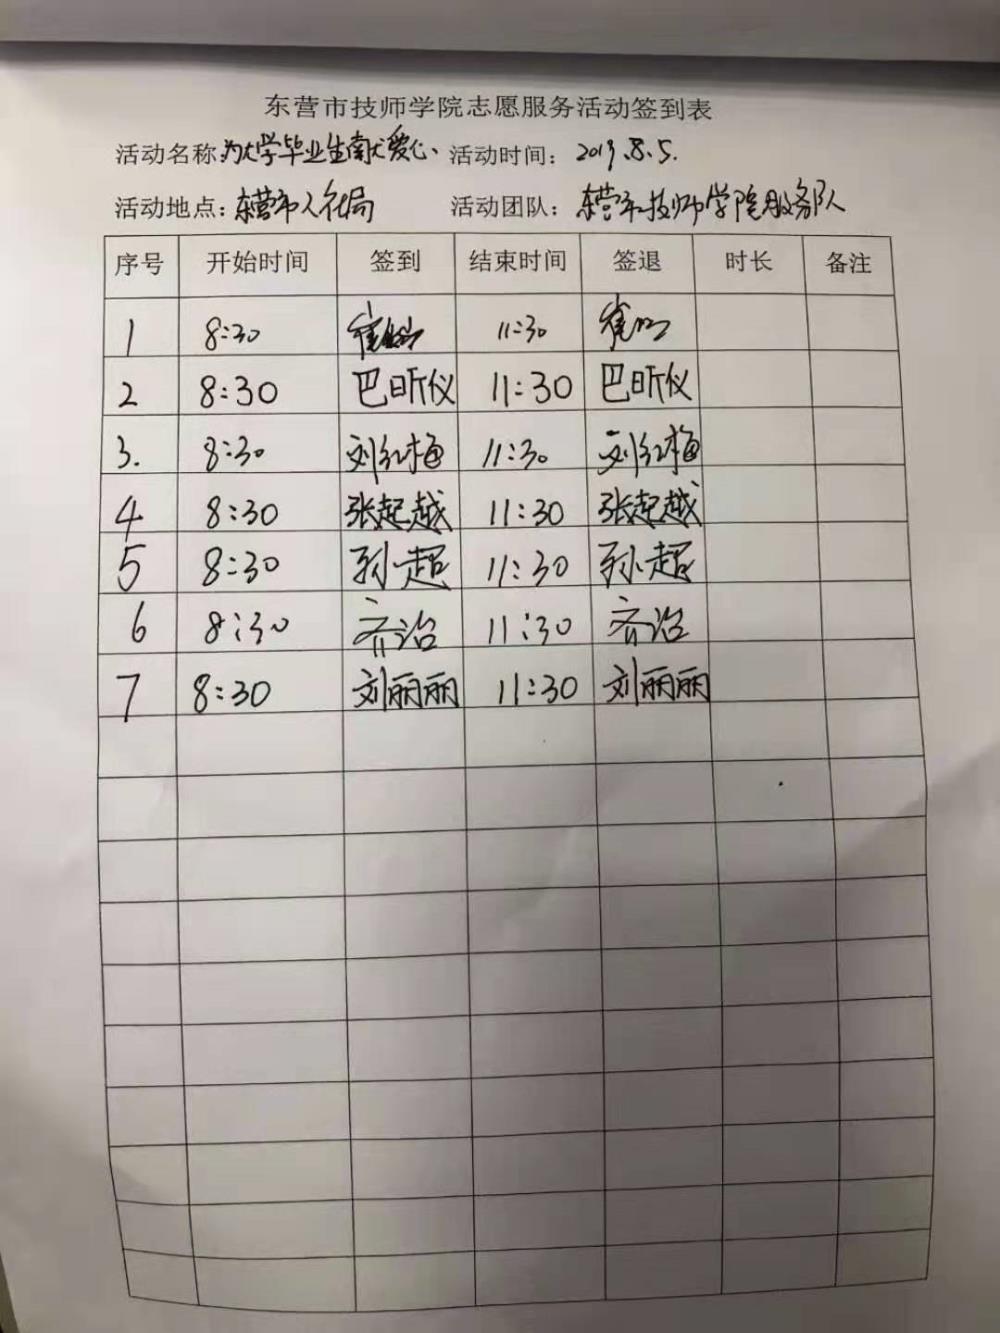 东营市技师学院志愿服务活动签到表
活动名称:为大学毕业生献爱心、 活动时间: 2019.8.5.
活动地点:东营市人社局 活动团队:东营市技师学院服务队
序号 开始时间 签到 结束时间 签退 时长 备注
1 8:30 崔 11:30 崔
2 8:30 巴昕仪 11:30 巴昕仪
3. 8:30 刘红梅 11:30 刘红梅
4 8:30 张起越 11:30 张起越
5 8:30 孙超 11:30 孙超
6 8:30 齐治 11:30 齐治
7 8:30 刘丽丽 11:30 刘丽丽